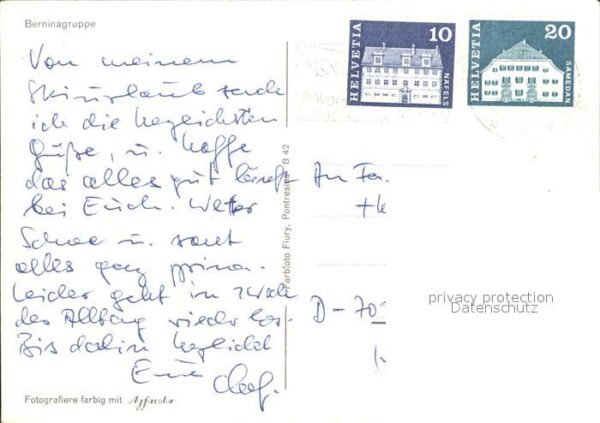 Berninagruppe
HELVETIA 10 NÄFELS
HELVETIA 20 SAMEDAN
Von meinem
Skiurlaub sende
ich die herzlichsten
Grüße, u. hoffe
das alles gut läuft
bei Euch. Wetter
Schnee u. sonst
alles ganz prima.
Leider geht in 1 Woche
der Alltag wieder los.
Bis dahin herzlichst
Eure
Fotografiere farbig mit Agfacolor
Farbfoto Flury, Pontresina B 42
An Fa.
D-70
privacy protection
Datenschutz